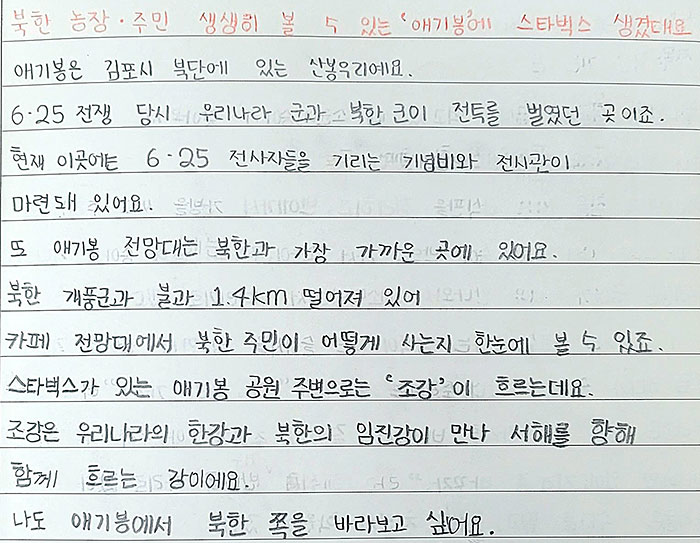 북한 농장·주민 생생히 볼 수 있는 '애기봉'에 스타벅스 생겼대요
애기봉은 김포시 북단에 있는 산봉우리예요.
6·25 전쟁 당시 우리나라 군과 북한 군이 전투를 벌였던 곳이죠.
현재 이곳에는 6·25 전사자들을 기리는 기념비와 전시관이
마련돼 있어요.
또 애기봉 전망대는 북한과 가장 가까운 곳에 있어요.
북한 개풍군과 불과 1.4km 떨어져 있어
카페 전망대에서 북한 주민이 어떻게 사는지 한눈에 볼 수 있죠.
스타벅스가 있는 애기봉 공원 주변으로는 '조강'이 흐르는데요.
조강은 우리나라의 한강과 북한의 임진강이 만나 서해를 향해
함께 흐르는 강이에요.
나도 애기봉에서 북한 쪽을 바라보고 싶어요.